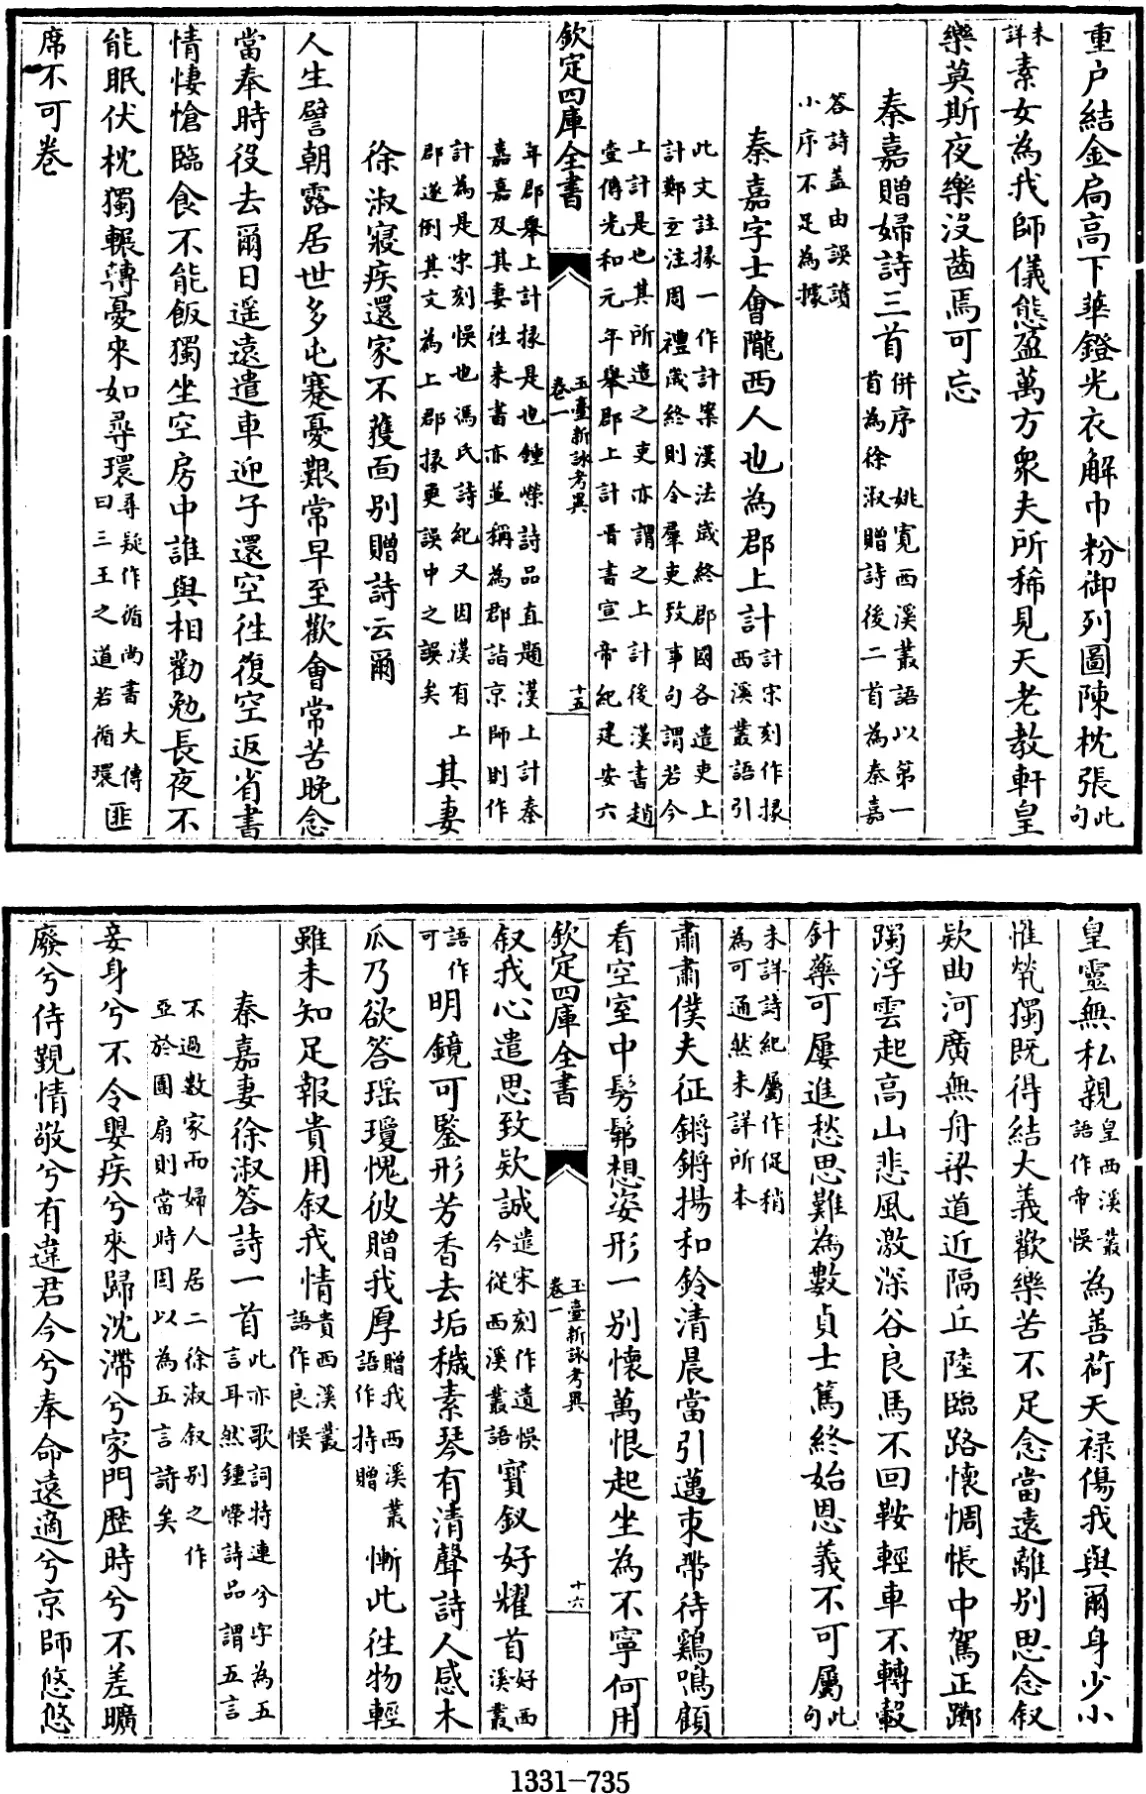 重户結金扃高下華鐙光衣解巾粉御列圖陳枕張此句
未詳素女為我師儀態盈萬方衆夫所稀見天老教軒皇
樂莫斯夜樂没齒焉可忘
秦嘉贈婦詩三首併序 姚寛西溪叢語以第一首為徐淑贈詩後二首為秦嘉
答詩蓋由誤讀小序不足為據
秦嘉字士會隴西人也為郡上計計宋刻作掾西溪叢語引
此文註掾一作計案漢法歲終郡國各遣吏上計鄭𤣥注周禮歲終則令羣吏致事句謂若今
上計是也其所遣之吏亦謂之上計後漢書趙壹傳光和元年舉郡上計晉書宣帝紀建安六
欽定四庫全書
玉臺新詠考異
卷一
十五
年郡舉上計掾是也鍾嶸詩品直題漢上計秦嘉嘉及其妻往来書亦並稱為郡詣京師則作
計為是宋刻悞也馮氏詩紀又因漢有上郡遂倒其文為上郡掾更誤中之誤矣其妻
徐淑寢疾還家不獲面别贈詩云爾
人生譬朝露居世多屯蹇憂艱常早至歡會常苦晚念
當奉時役去爾日遥遠遣車迎子還空往復空返省書
情悽愴臨食不能飯獨坐空房中誰與相勸勉長夜不
能眠伏枕獨輾轉憂來如尋環尋疑作循尚書大傳曰三王之道若循環匪
席不可卷
皇靈無私親皇西溪叢語作帝悞為善荷天禄傷我與爾身少小
惟煢獨既得結大義歡樂苦不足念當遠離别思念叙
欵曲河廣無舟梁道近隔丘陸臨路懷惆悵中駕正躑
躅浮雲起高山悲風激深谷良馬不回鞍輕車不轉轂
針藥可屢進愁思難為數貞士篤終始恩義不可屬此句
未詳詩紀屬作促稍為可通然未詳所本
肅肅僕夫征鏘鏘揚和鈴清晨當引邁束帶待鷄鳴顧
看空室中髣髴想姿形一别懷萬恨起坐為不寧何用
欽定四庫全書
玉臺新詠考異
卷一
十六
叙我心遣思致欵誠遣宋刻作遺悞今從西溪叢語寳釵好耀首好西溪叢
語作可明鏡可鑒形芳香去垢穢素琴有清聲詩人感木
瓜乃欲答瑶瓊愧彼贈我厚贈我西溪叢語作持贈慚此往物輕
雖未知足報貴用叙我情貴西溪叢語作良悞
秦嘉妻徐淑答詩一首此亦歌詞特連兮字為五言耳然鍾嶸詩品謂五言
不過數家而婦人居二徐淑叙别之作亞於團扇則當時固以為五言詩矣
妾身兮不令嬰疾兮來歸沈滯兮家門歴時兮不差曠
廢兮侍覲情敬兮有違君今兮奉命遠適兮京師悠悠
1331-735